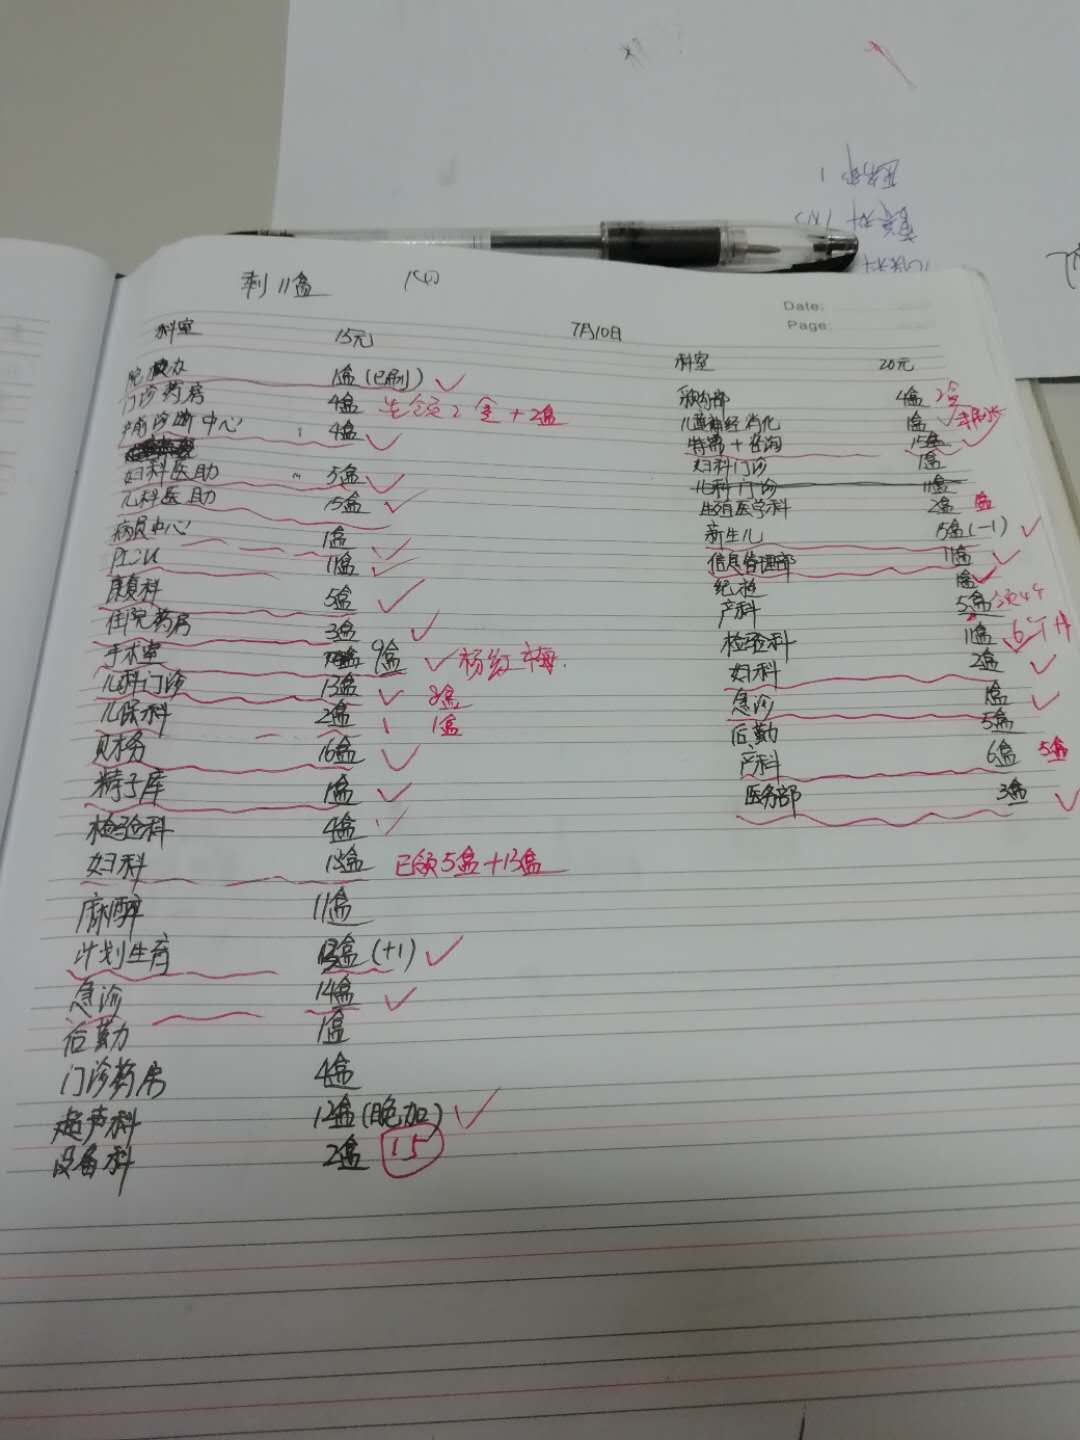 剩11盒
Date:
Page:
7月10日
科室 15元
院办 1盒(已刷)
门诊药房 4盒 先领2盒+2盒
产前诊断中心 4盒
妇科医助 5盒
儿科医助 15盒
病员中心 1盒
PICU 11盒
康复科 5盒
住院药房 3盒
手术室 9盒 杨红梅
儿科门诊 13盒 8盒
儿保科 2盒 1盒
财务 16盒
精子库 1盒
检验科 4盒
妇科 13盒 已领5盒+13盒
麻醉 11盒
计划生育 盒(+1)
急诊 14盒
后勤 1盒
门诊药房 4盒
超声科 12盒(晚加)
设备科 2盒 15
科室 20元
采购部 4盒 2盒
儿童神经 消化 1盒
特需+咨询 15盒
妇科门诊 1盒
儿科门诊 11盒
生殖医学科 2盒 盒
新生儿 15盒(-1)
信息管理部 11盒
纪检 1盒
产科 5盒
检验科 11盒 6个月
妇科 2盒
急诊 1盒
后勤 5盒
产科 6盒 5盒
医务部 3盒